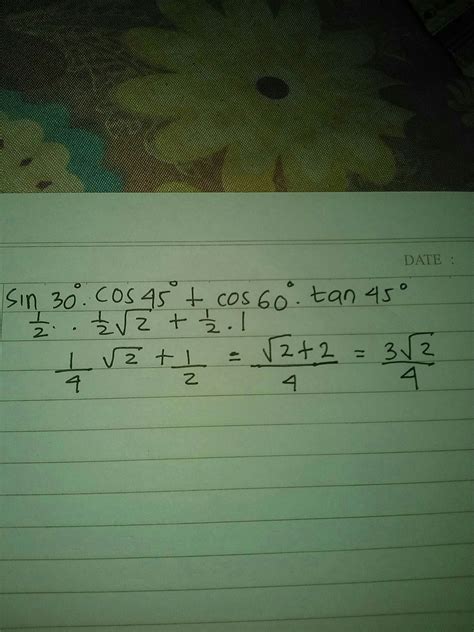 DATE :
sin 30°. cos 45° + cos 60°. tan 45°
1/2 . . 1/2 √2 + 1/2 . 1
1/4 √2 + 1/2 = √2+2/4 = 3√2/4